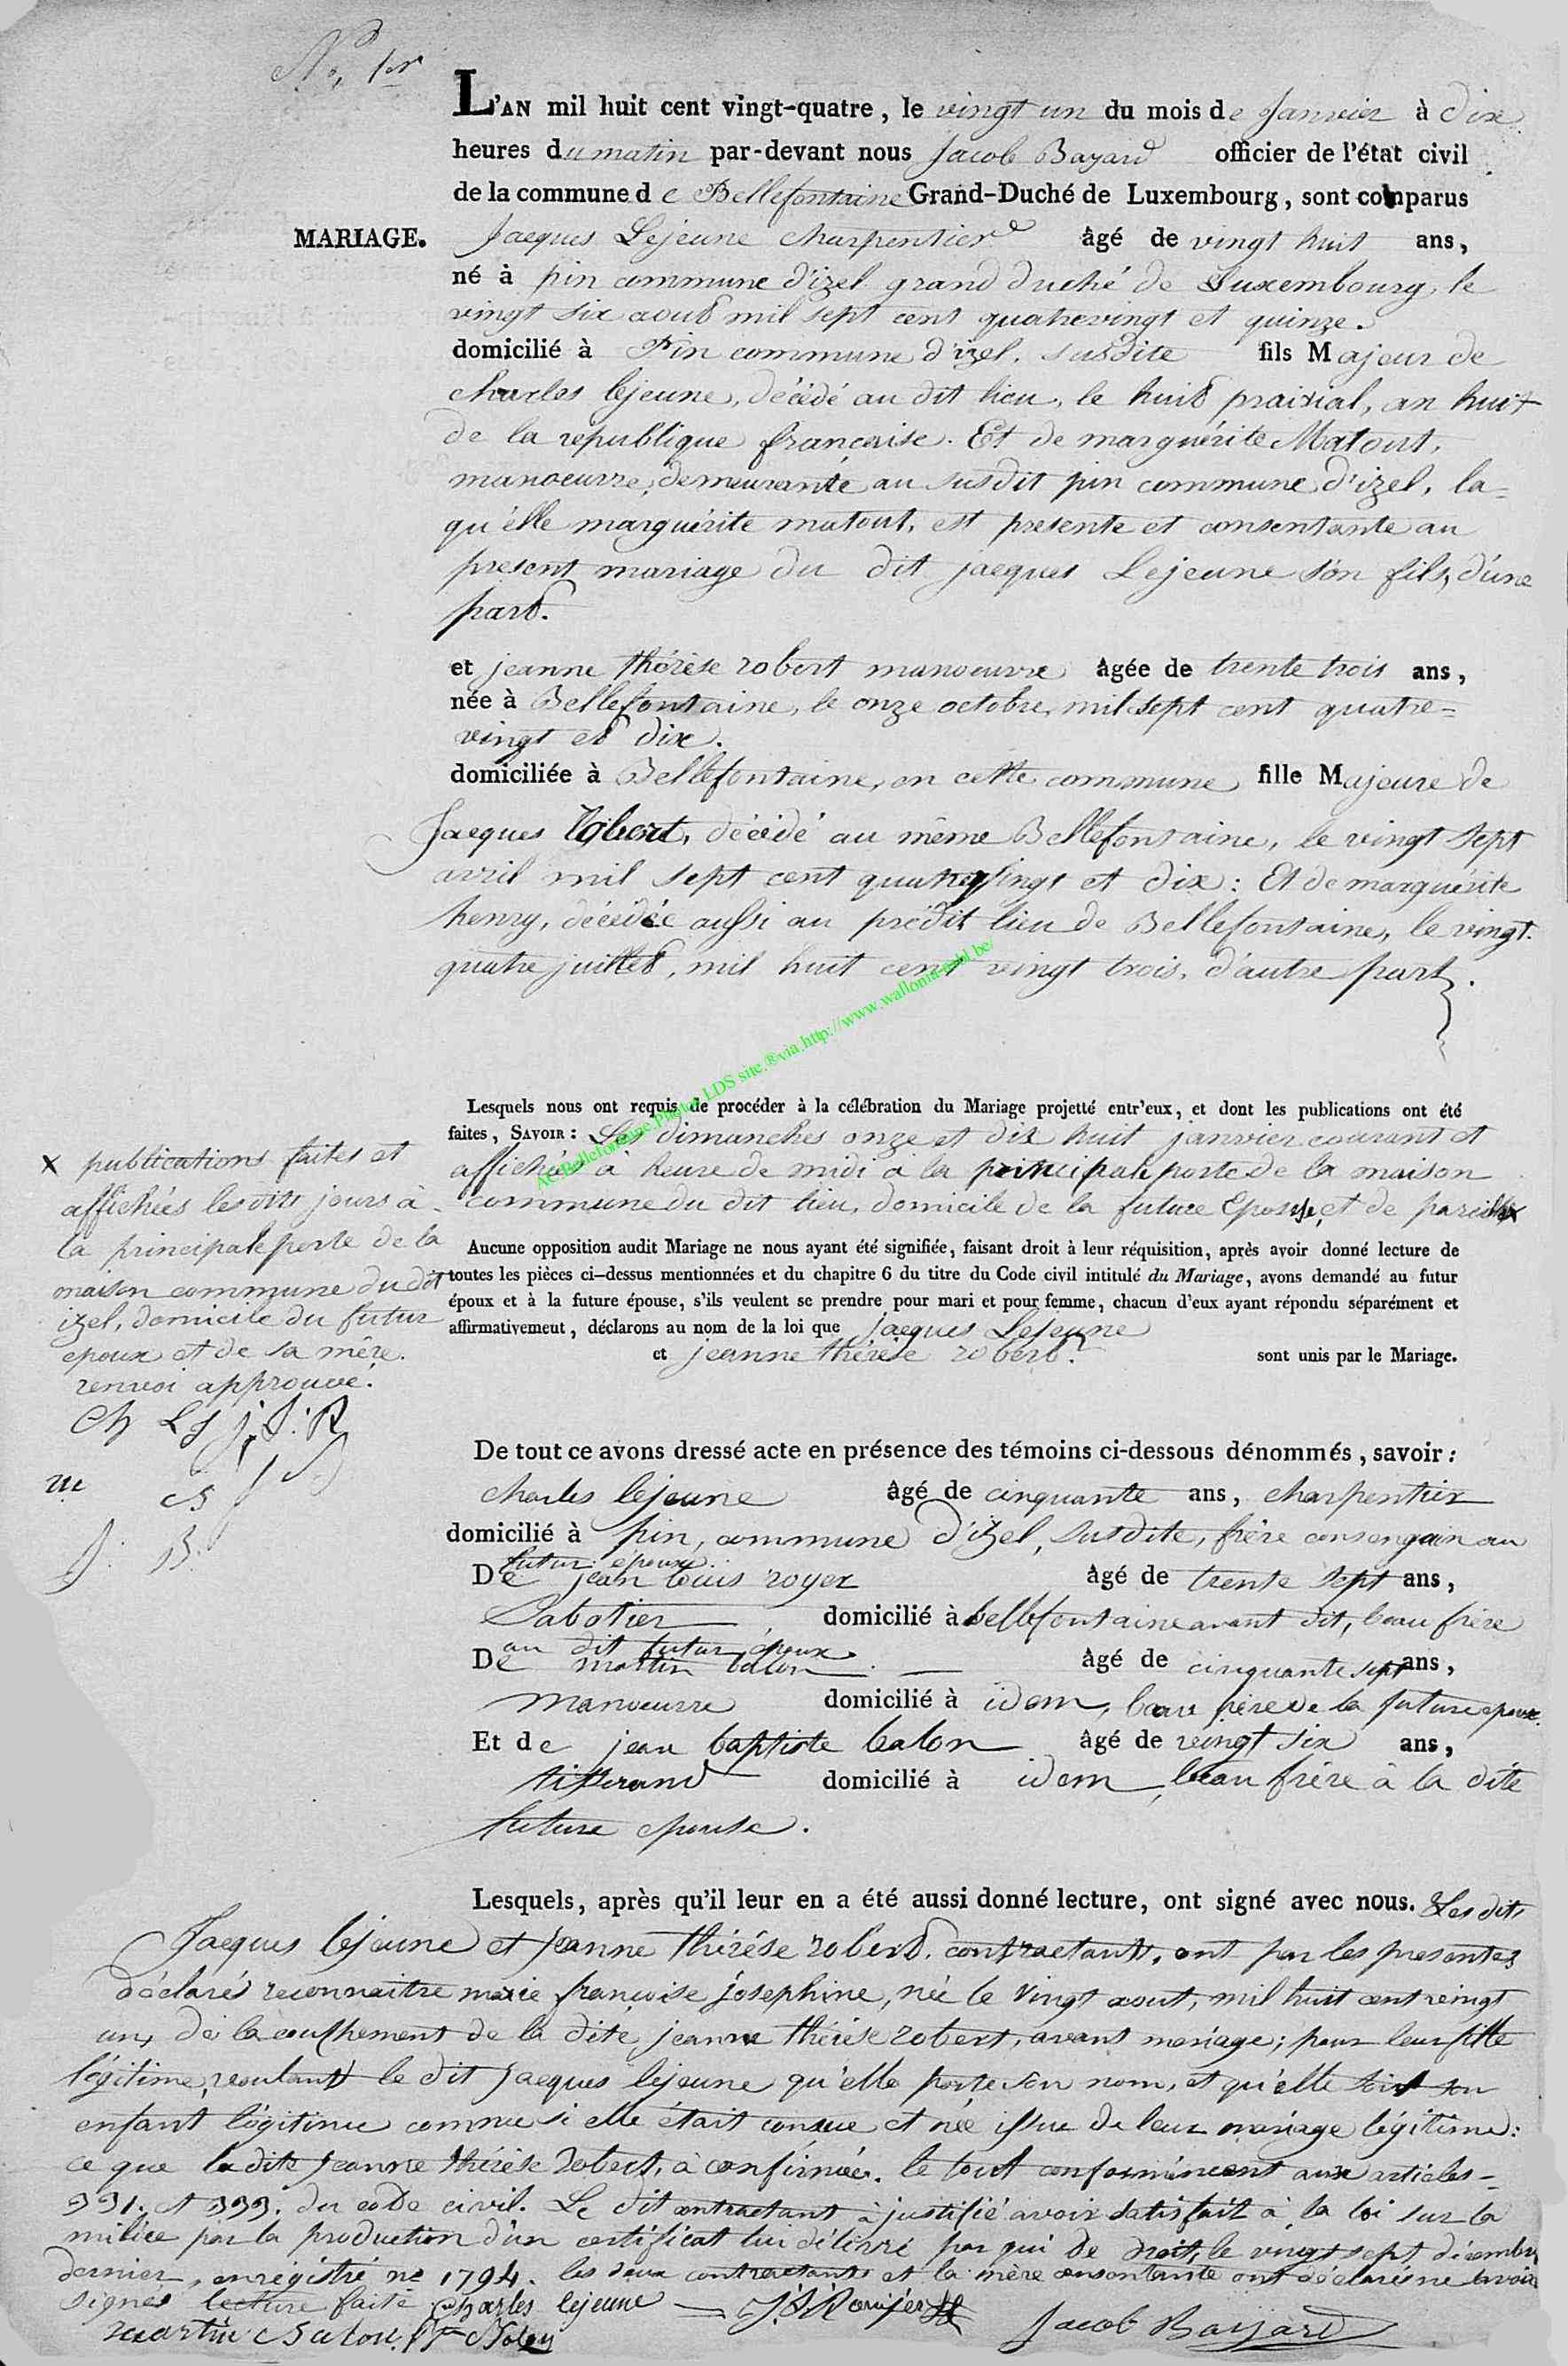 N.o 1er
L'AN mil huit cent vingt-quatre, le vingt un du mois de Janvier à dix
heures du matin par-devant nous Jacob Bayard officier de l'état civil
de la commune de Bellefontaine Grand-Duché de Luxembourg, sont comparus
MARIAGE.
Jacques Lejeune charpentier âgé de vingt huit ans,
né à pin commune d'izel grand duché de Luxembourg, le
vingt six aout mil sept cent quatrevingt et quinze.
domicilié à Pin commune d'izel, susdite fils Majeur de
charles lejeune, décédé au dit lieu, le huit prairial, an huit
de la republique française. Et de marguérite Matout,
manoeuvre, demeurante au susdit pin commune d'izel, la=
qu'elle marguérite matout, est presente et consentante au
present mariage du dit jacques Lejeune son fils, d'une
part.
et jeanne thérèse robert manoeuvre âgée de trente trois ans,
née à Bellefontaine, le onze octobre, mil sept cent quatre=
vingt et dix.
domiciliée à Bellefontaine, en cette commune fille Majeure de
Jacques Robert, décédé au même Bellefontaine, le vingt sept
avril mil sept cent quatrevingt et dix: Et de marguérite
henry, décédée aussi au prédit lieu de Bellefontaine, le vingt.
quatre juillet, mil huit cent vingt trois, d'autre part.
AC Bellefontaine Photos LDS site ® via http://www.wallonia-asbl.be/
Lesquels nous ont requis de procéder à la célébration du Mariage projetté entr'eux, et dont les publications ont été
faites, SAVOIR: Les dimanches onze et dix huit janvier courant et
affichées à heure de midi à la principale porte de la maison
commune du dit lieu, domicile de la future Epouse, et de pareilles x
x publications faites et
affichées les dits jours à
la principale porte de la
maison commune du dit
izel, domicile du futur
epoux et de sa mère.
renvoi approuvé.
Ch LJ J: R
m B
J: B:
Aucune opposition audit Mariage ne nous ayant été signifiée, faisant droit à leur réquisition, après avoir donné lecture de
toutes les pièces ci-dessus mentionnées et du chapitre 6 du titre du Code civil intitulé du Mariage, avons demandé au futur
époux et à la future épouse, s'ils veulent se prendre pour mari et pour femme, chacun d'eux ayant répondu séparément et
affirmativement, déclarons au nom de la loi que Jacques Lejeune
et jeanne thérèse robert. sont unis par le Mariage.
De tout ce avons dressé acte en présence des témoins ci-dessous dénommés, savoir:
charles lejeune âgé de cinquante ans, charpentier
domicilié à pin, commune d'izel, susdite, frère consenguin au
futur époux.
De jean louis royer âgé de trente sept ans,
Sabotier domicilié à bellefontaine avant dit, beau frère
au dit futur époux
De martin balon âgé de cinquante sept ans,
manoeuvre domicilié à idem, beau frère de la future epouse.
Et de jean baptiste balon âgé de vingt six ans,
tisserand domicilié à idem, beau frère à la dite
future epouse.
Lesquels, après qu'il leur en a été aussi donné lecture, ont signé avec nous. Les dits
Jacques lejeune et Jeanne thérèse robert, contractants, ont par les presentes
déclaré reconnaitre marie françoise josephine, née le vingt aout, mil huit cent vingt
un, de l'acouchement de la dite jeanne thérèse robert, avant mariage; pour leur fille
légitime, voulant le dit jacques lejeune qu'elle porte son nom, et qu'elle soit son
enfant légitime comme si elle était conçue et née issue de leur mariage légitime:
ce que la dite jeanne thérèse Robert, a confirmée. le tout conformément aux articles=
331. et 333. du code civil. Le dit contractant a justifié avoir satisfait à la loi sur la
milice par la production d'un certificat lui délivré par qui de droit, le vingt sept décembre
dernier, enrégistré no 1794. les deux contractants et la mère consentante ont déclarés ne savoir
signés lecture faite Charles lejeune
martin Balon Jacob Bayard